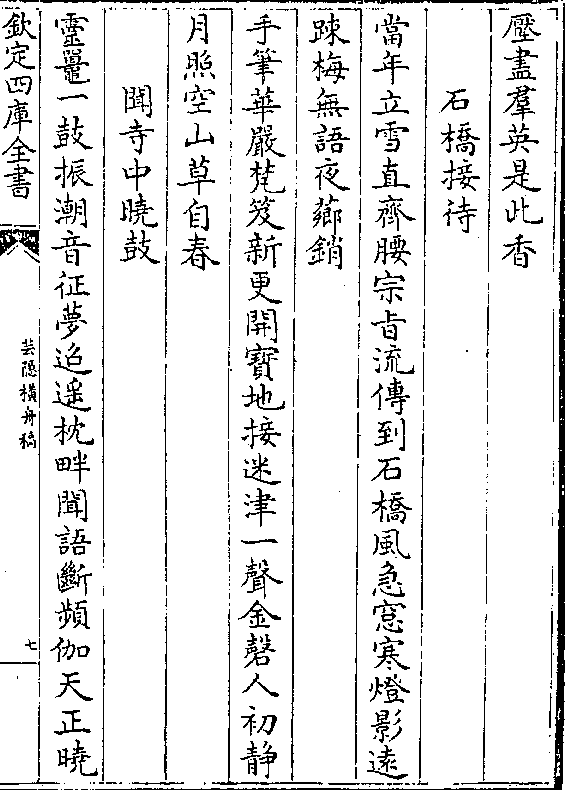 壓盡羣英是此香
石橋接待
當年立雪直齊腰宗㫖流傳到石橋風急窓寒燈影逺
踈梅無語夜薌銷
手筆華嚴梵笈新更開寶地接迷津一聲金磬人初静
月照空山草自春
聞寺中曉鼓
靈鼉一鼓振潮音征夢迢遥枕畔聞語斷頻伽天正曉
欽定四庫全書
芸隱橫舟稿
七